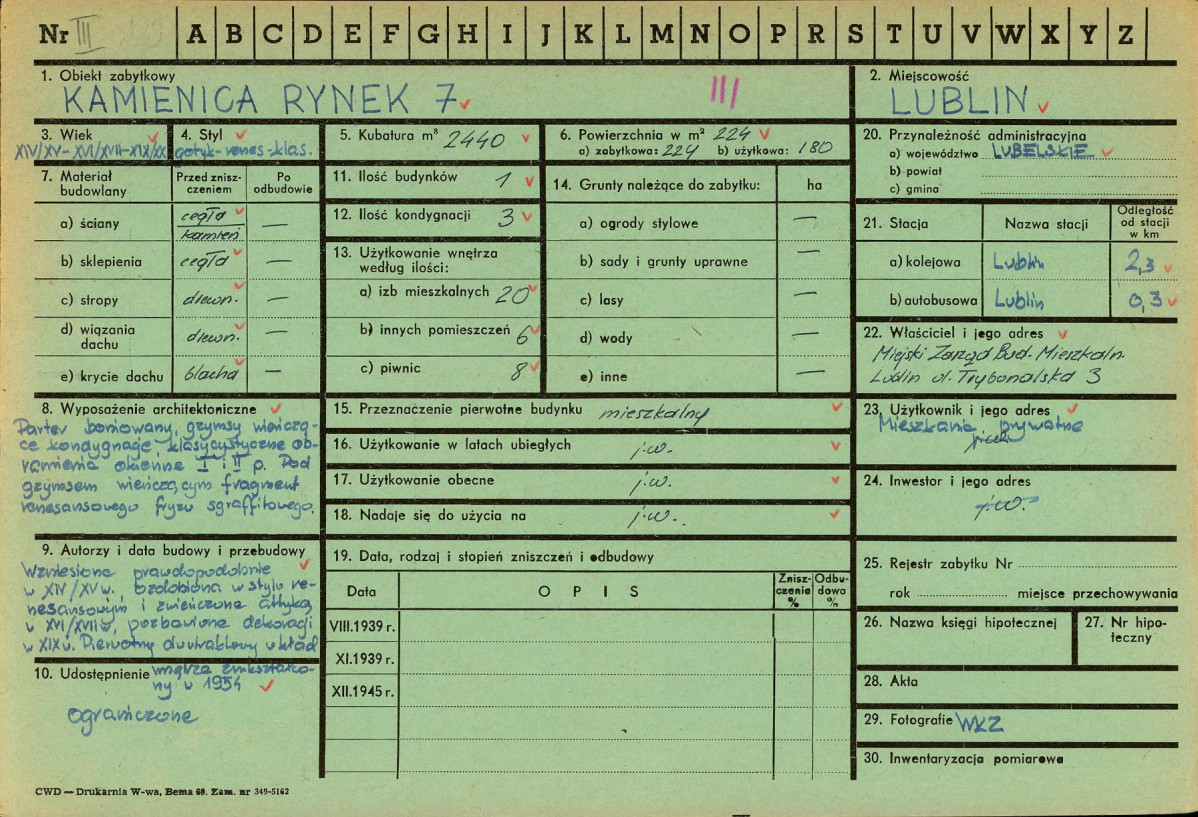 Nr III A B C D E F G H I J K L M N O P R S T U V W X Y Z
1. Obiekt zabytkowy
KAMIENICA RYNEK 7
III
2. Miejscowość
LUBLIN
3. Wiek
XIV/XV-XVI/XVII-XIX/XX
4. Styl
gotyk-renes-klas.
5. Kubatura m³ 2440
6. Powierzchnia w m² 224
a) zabytkowa: 224 b) użytkowa: 180
20. Przynależność administracyjna
a) województwo LUBELSKIE
b) powiat
c) gmina
7. Materiał budowlany
Przed zniszczeniem
Po odbudowie
a) ściany cegła kamień —
b) sklepienia cegła —
c) stropy drewn. —
d) wiązania dachu drewn. —
e) krycie dachu blacha —
11. Ilość budynków 1
12. Ilość kondygnacji 3
13. Użytkowanie wnętrza
według ilości:
a) izb mieszkalnych 20
b) innych pomieszczeń 6
c) piwnic 8
14. Grunty należące do zabytku: ha
a) ogrody stylowe —
b) sady i grunty uprawne —
c) lasy —
d) wody —
e) inne —
21. Stacja Nazwa stacji Odległość od stacji w km
a) kolejowa Lublin 2,3
b) autobusowa Lublin 0,3
22. Właściciel i jego adres
Miejski Zarząd Bud. Mieszkaln.
Lublin ul. Trybunalska 3
8. Wyposażenie architektoniczne
Parter boniowany, gzymsy wieńczą-
ce kondygnacje, klasycystyczne ob-
ramienia okienne I i II p. Pod
gzymsem wieńczącym fragment
renesansowego fryzu sgraffitowego.
15. Przeznaczenie pierwotne budynku mieszkalny
16. Użytkowanie w latach ubiegłych j.w.
17. Użytkowanie obecne j.w.
18. Nadaje się do użycia na j.w.
23. Użytkownik i jego adres
Mieszkania prywatne
j.w.
24. Inwestor i jego adres
j.w.
9. Autorzy i data budowy i przebudowy
Wzniesiona prawdopodobnie
w XIV/XVw., ozdobiona w stylu re-
nesansowym i zwieńczona attyką
w XVI/XVIIw, pozbawiona dekoracji
w XIXw. Pierwotny dwutraktowy układ
wnętrza zniekształco-
ny w 1954
10. Udostępnienie
ograniczone
19. Data, rodzaj i stopień zniszczeń i odbudowy
Data OPIS Zniszczenie % Odbudowa %
VIII.1939 r.
XI.1939 r.
XII.1945 r.
25. Rejestr zabytku Nr
rok miejsce przechowywania
26. Nazwa księgi hipotecznej
27. Nr hipoteczny
28. Akta
29. Fotografie WKZ
30. Inwentaryzacja pomiarowa
CWD — Drukarnia W-wa, Bema 60. Zam. nr 349-5162